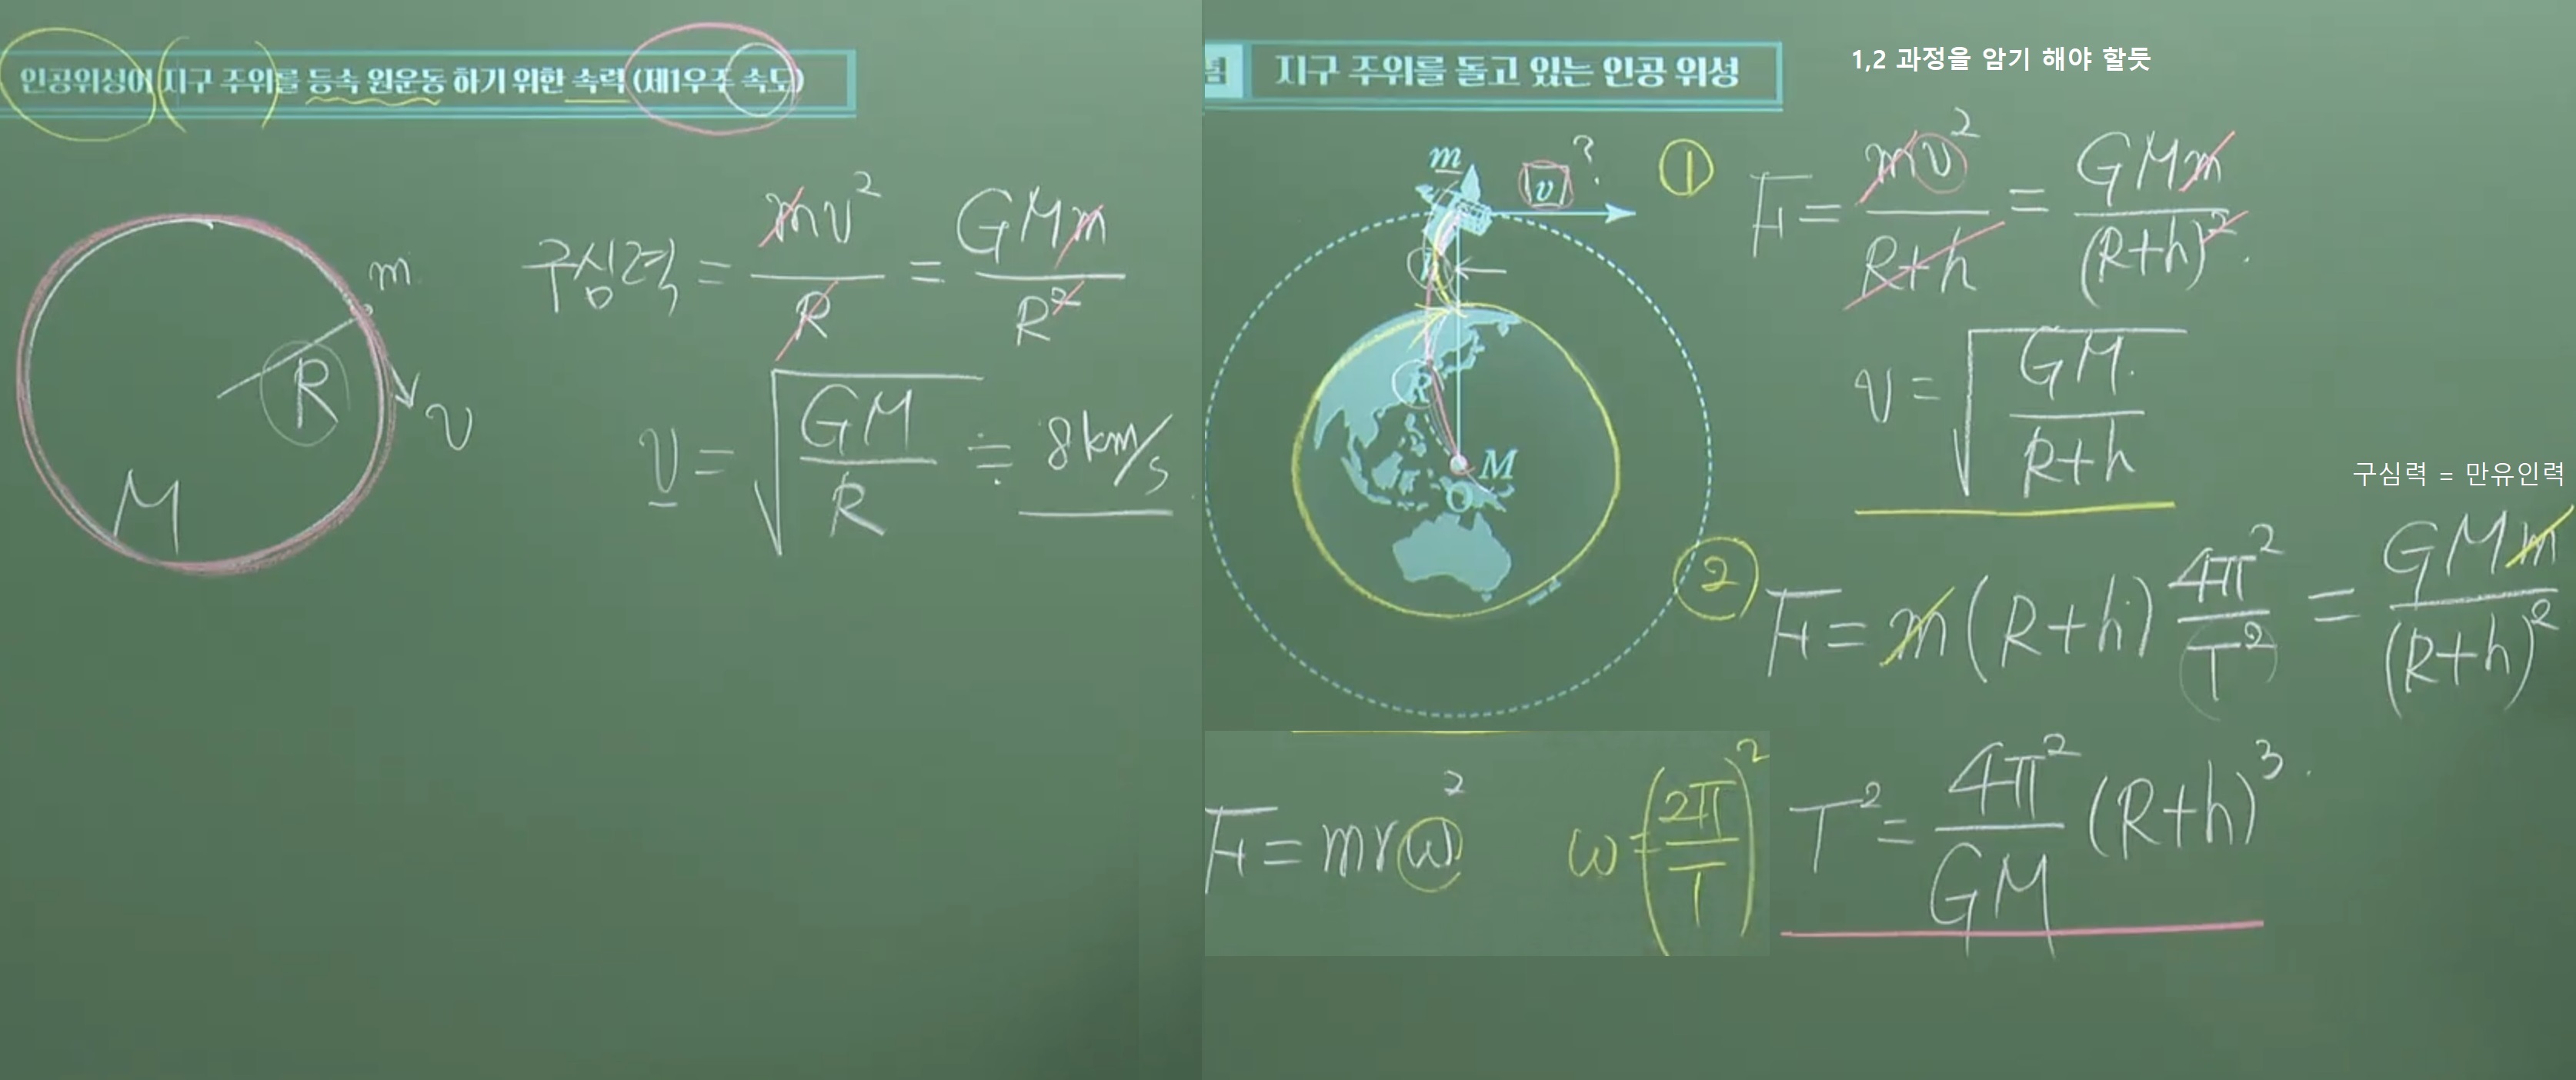 인공위성이 지구 주위를 등속 원운동 하기 위한 속력 (제1우주 속도)
m
R
v
M
구심력 = mv²/R = GMm/R²
v = √(GM/R) ≒ 8km/s
널 지구 주위를 돌고 있는 인공 위성
1,2 과정을 암기 해야 할듯
m
v ?
h
R
M
O
① F = mv²/(R+h) = GMm/(R+h)²
v = √(GM/(R+h))
구심력 = 만유인력
② F = m(R+h) 4π²/T² = GMm/(R+h)²
F = mrω² ω = (2π/T)²
T² = 4π²/GM (R+h)³